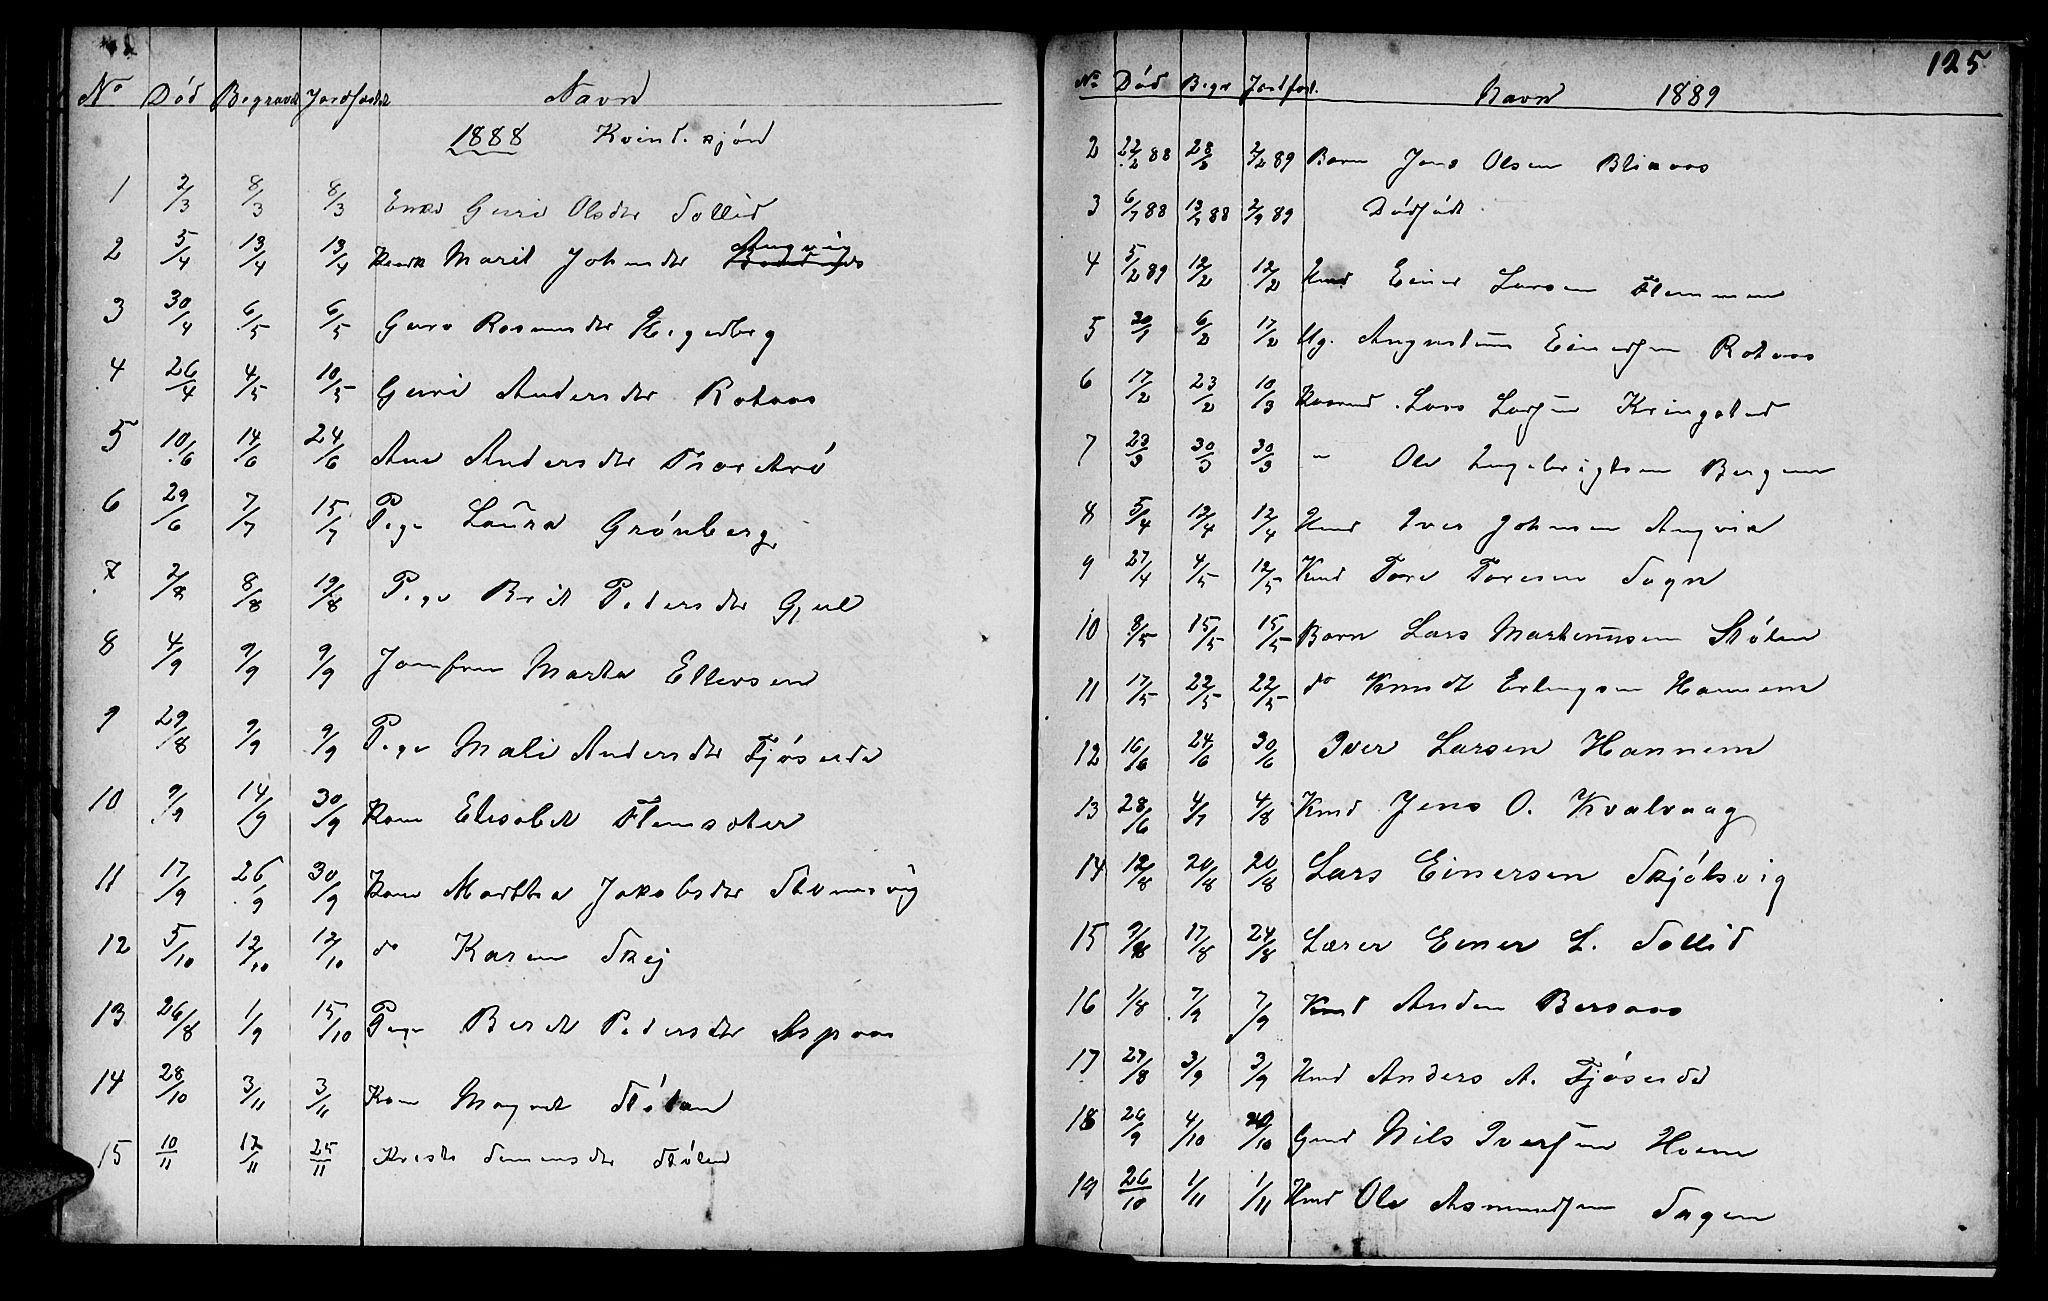 No Død Begravet Jordfæstet Navn
1888 Kvind. kjøn
1 2/3 8/3 8/3 Enke Guri Olsdtr Sollid
2 5/4 13/4 13/4 Marit Johnsdtr Angvig
3 30/4 6/5 6/5 Guro Rasmusdtr Hegdberg
4 26/4 4/5 10/5 Guri Andersdtr Rotaas
5 10/6 14/6 24/6 Ane Andersdtr
6 29/6 7/7 15/7 Pige Laura Grønberg
7 2/8 8/8 19/8 Pige Brit Pedersdtr Gjul
8 4/9 9/9 9/9 Jomfru Marta Ellevsen
9 29/8 9/9 9/9 Pige Mali Andersdtr Fjøseide
10 9/9 14/9 30/9 Kone Elisabet Flemsæter
11 17/9 26/9 30/9 Kone Martha Jakobsdtr
12 5/10 12/10 12/10 do Karen Skej
13 26/8 1/9 15/10 Pige Beret Pedersdtr Aspaas
14 28/10 3/11 3/11 Kone Magnet Stølan
15 10/11 17/11 25/11 Kirsti Simensdtr Stølen
125
No Død Begr Jordfæst. Navn 1889
2 22/2 88 28/2 2/2 89 Barn Jens Olsen Blikaas
3 6/7 88 13/7 88 2/9 89 Dødfødt
4 5/2 89 12/2 12/2 Kmd Einer Larsen Flemmen
5 20/1 6/2 17/2 Ug. Augustinus Einersen Rotaas
6 17/2 23/2 10/3 Lars Larsen Kringstad
7 23/3 30/3 30/3 " Ole Ingebrigtsen Bergem
8 5/4 12/4 12/4 Kmd Iver Johnsen Angvik
9 27/4 4/5 12/5 Kmd Tore Toresen Sogn
10 8/5 15/5 15/5 Barn Lars Martenusen Stølen
11 17/5 22/5 22/5 do Knudt Erlingsen Hannem
12 16/6 24/6 30/6 Iver Larsen Hannem
13 28/6 4/7 4/8 Kmd Jens O. Kvalvaag
14 12/8 20/8 20/8 Lars Einersen Skjølsvig
15 9/8 17/8 24/8 Lærer Einer L. Sollid
16 1/8 7/9 7/9 Kmd Anden Bersaas
17 27/8 3/9 3/9 Kmd Anders A. Fjøseide
18 26/9 4/10 20/10 Gmd Nils Iversen Hoem
19 26/10 1/11 1/11 Kmd Ole Asmundsen Sagen